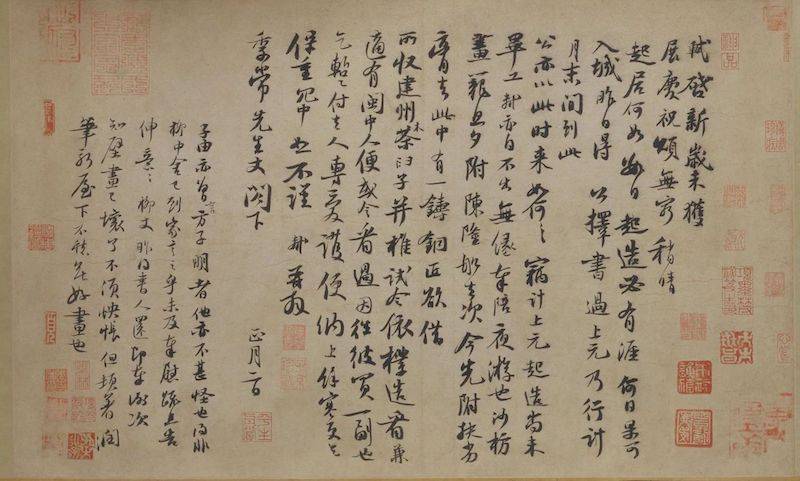 軾啓新歲未獲
展慶祝頌無窮稍晴
起居何如數日起造必有涯何日果可
入城昨日得公擇書過上元乃行計
月末間到此
公亦以此時來如何〻竊計上元起造尚未
畢工軾亦自不出無緣奉陪夜遊也沙枋
畫籠旦夕附陳隆船去次今先附扶劣
膏去此中有一鑄銅匠欲借
所収建州木茶臼子并椎試令依樣造看兼
適有閩中人便或令看過因往彼買一副也
乞暫付去人專愛護便納上餘寒更乞
保重冗中恕不謹軾再拜
季常先生丈閣下
正月二日
子由亦曾言方子明者他亦不甚怪也得非
柳中舍已到家言之乎未及奉慰疏且告
伸意〻柳丈昨得書人還即奉謝次
知壁畫已壞了不須怏悵但頓著潤
筆新屋下不愁無好畫也